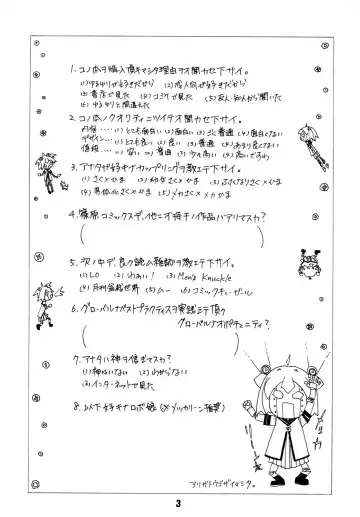 1. コノ本ヲ購入頂キマシタ理由ヲオ聞カセ下サイ。
(1)ゆるゆりが好きだから (2)成人向が好きだから
(3)書店で見た (4)コミケで見た (5)友人・知人から聞いた
(6)ゆるゆりと間違えた
2. コノ本ノクオリティニツイテオ聞カセ下サイ。
内容・・・・(1)とても面白い (2)面白い (3)普通 (4)面白くない
デザイン・・・(1)とても良い (2)良い (3)普通 (4)あまり良くない
価格・・・・(1)安い (2)普通 (3)少々高い (4)高いですわ
3. アナタガ好キナカップリングヲ教エテ下サイ。
(1)さく×ひま (2)オカダさく×ひま (3)ふたなりさく×ひま
(4)男体化さく×ひま (5)メカさく×メカひま
4. 篠原コミックスデ、他ニオ持チノ作品ハアリマスカ?
( )
5. 次ノ中デ、良ク読ム雑誌ヲ教エテ下サイ。
(1)LO (2)わぁい! (3)Men's Knuckle
(4)月刊盆栽世界 (5)ムー (6)コミックキューガール
6. グローバルナベストプラクティスヲ実践シテ頂ク
グローバルナオパチュニティ?
( )
7. アナタハ神ヲ信ジマスカ?
(1)神はいない (2)わからない
(3)インターネットで見た
8. 以下好キナロボ絵(※メッカリーン推奨)
アリガトウゴザイマシタ。
3